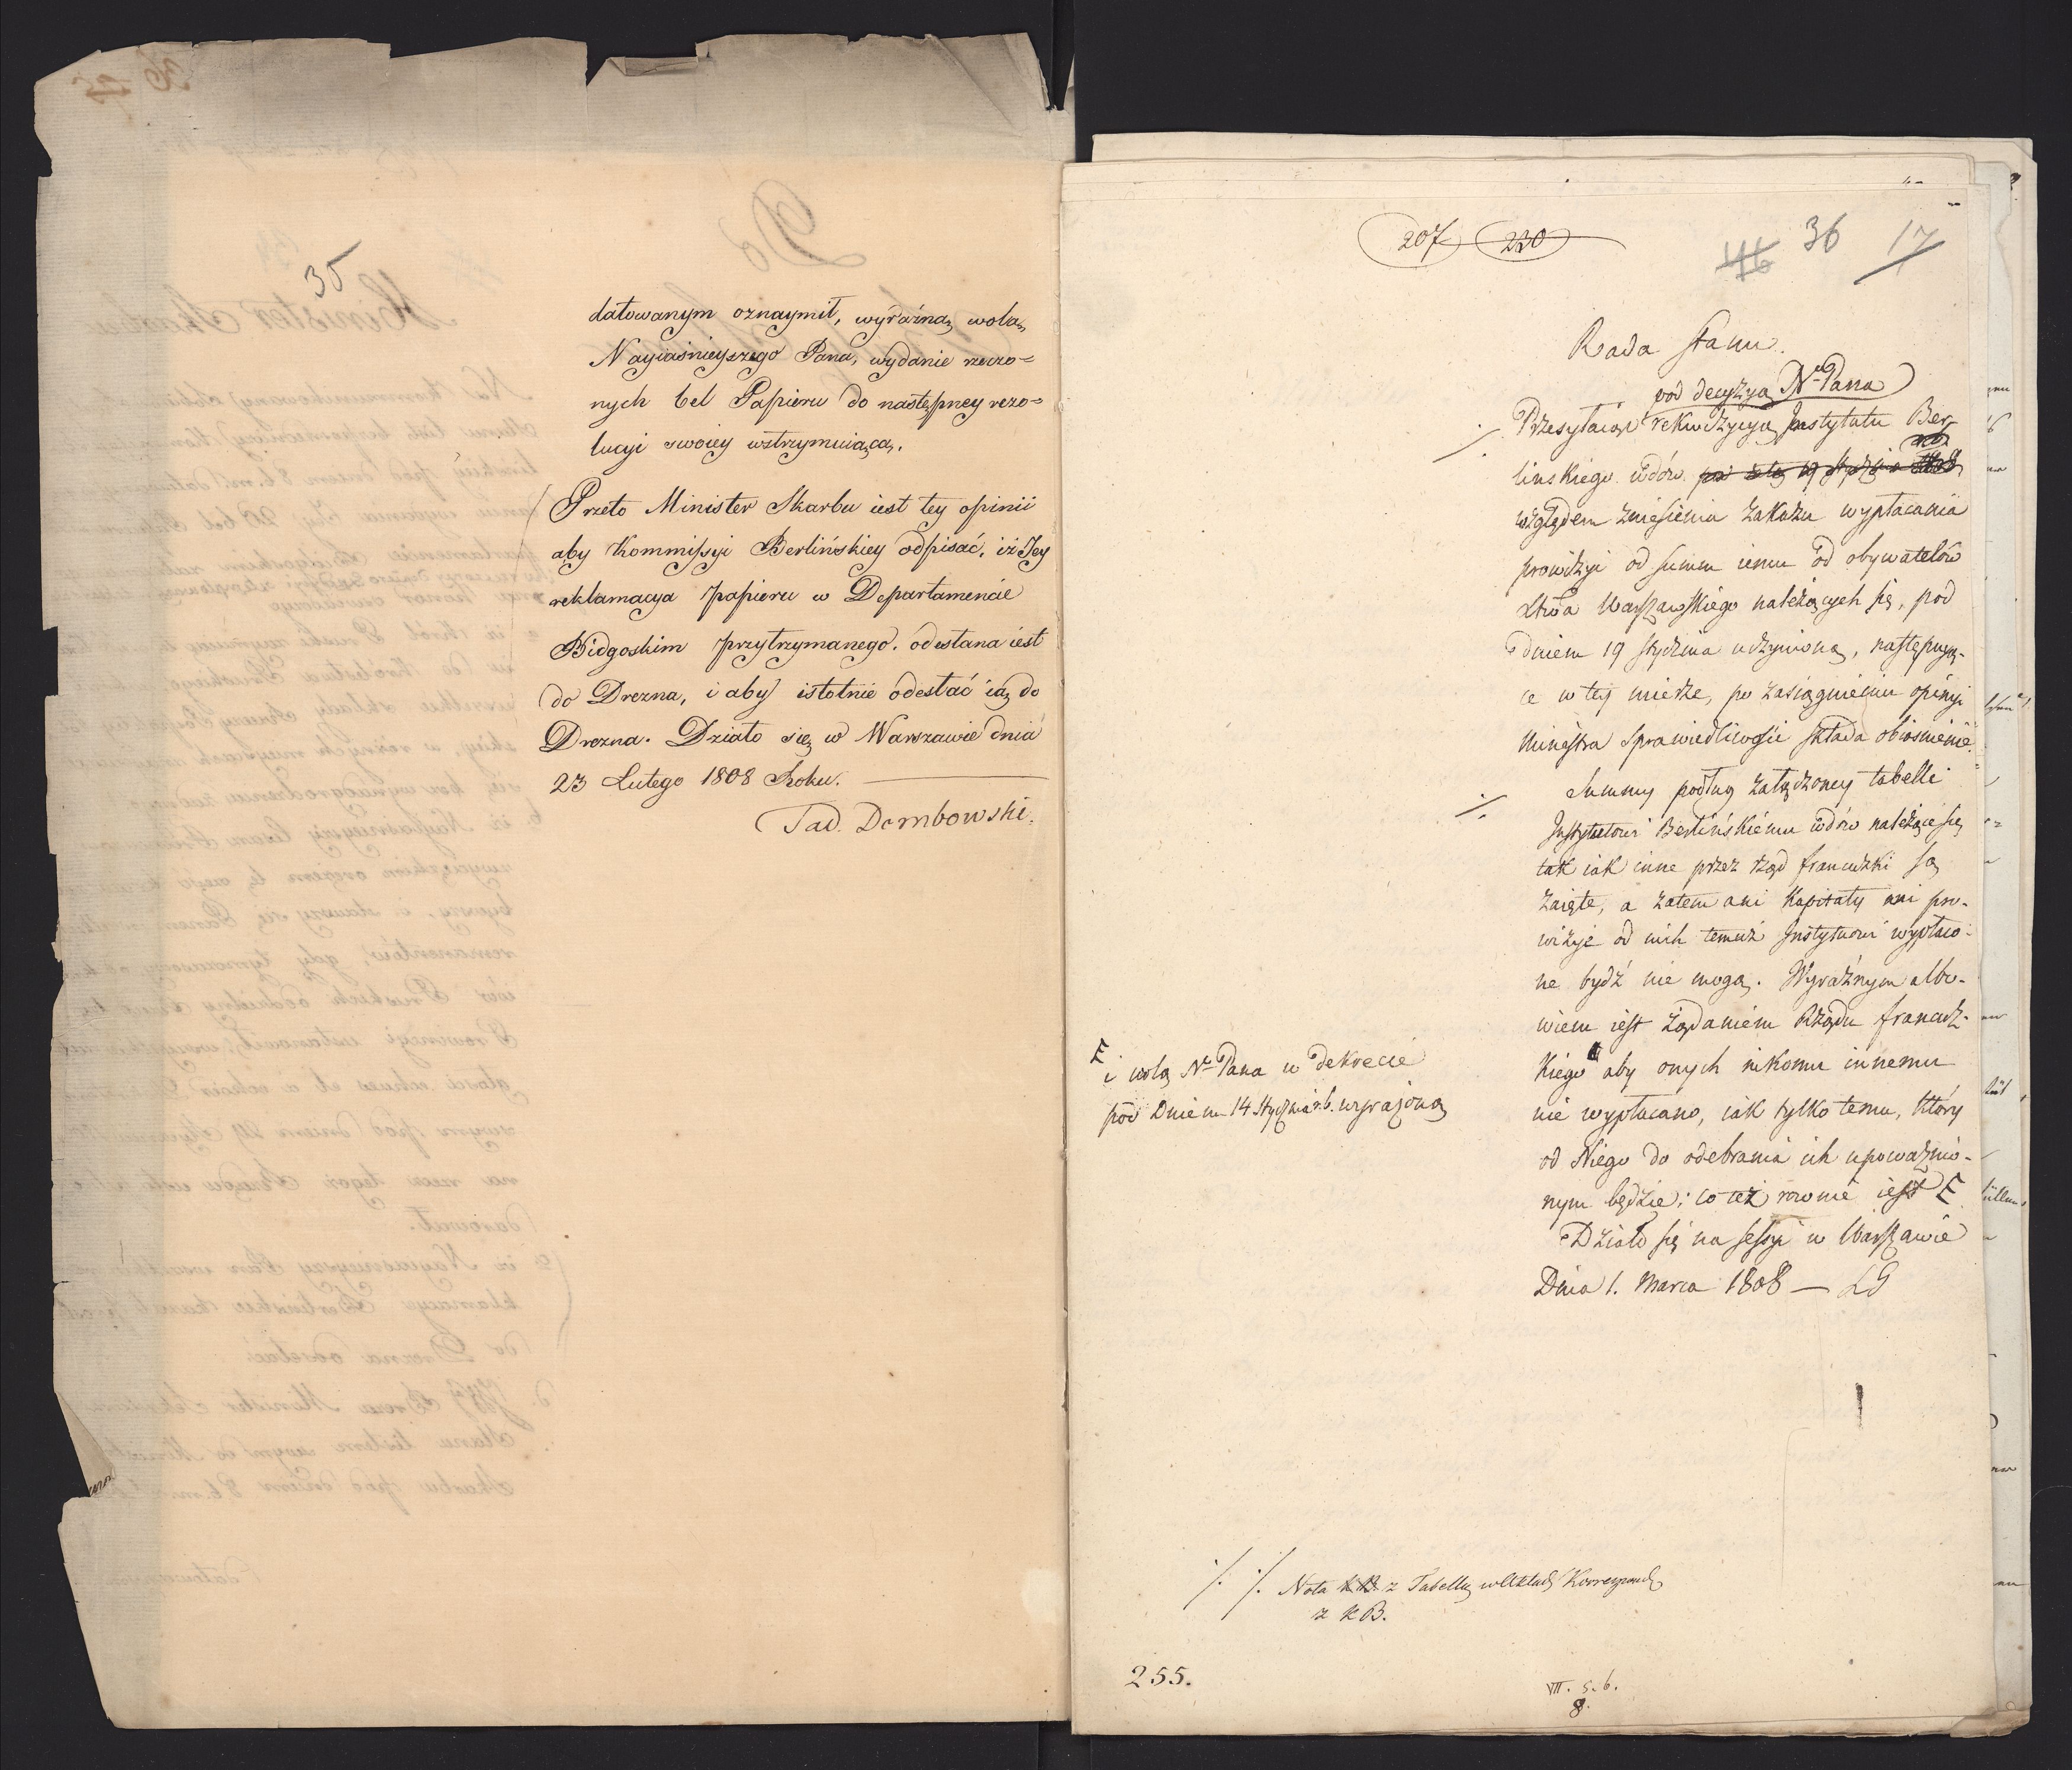 35
datowanym oznaymił, wyraźną wolą
Nayiaśnieyszego Pana, wydanie rzeczo=
nych bel Papieru do następney rezo=
lucyi swoiey wstrzymuiącą.
Przeto Minister Skarbu iest tey opinii
aby Kommissyi Berlińskiey odpisać, iż Jey
reklamacya papieru w Departamencie
Bidgoskim przytrzymanego. odesłana iest
do Drezna, i aby istotnie odesłać ią do
Drezna. Działo się w Warszawie dnia
23 Lutego 1808 Roku.
Tad. Dembowski.
207 230
146 36 17
Rada Stanu.
pod decyzyą Nº Pana
Przesyłaiąc rekwizycyą Instytutu Ber-
linskiego wdów 19
względem zniesienia zakazu wypłacania
prowizyi od summ iemu od obywatelów
Xtwa Warszawskiego należących się, pod
dniem 19 stycznia uczynioną, następuią-
ce w tey mierze, po zasiągnieniu opinyi
Ministra Sprawiedliwości składa obiaśnienie.
Summy podług załączoney tabelli
Instytutowi Berlińskiemu wdów należące się
tak iak inne przez rząd francuzki są
zaięte, a zatem ani Kapitały ani pro-
wizye od nich temuż Instytutowi wypłaco-
ne bydź nie mogą. Wyraźnym albo-
wiem iest żądaniem Rządu francuz-
kiego aby onych nikomu innemu
nie wypłacano, iak tylko temu, który
od Niego do odebrania ich upoważnio-
nym będzie; co też równie iest F
F
i wolą Nº Pana w Dekrecie
pod Dniem 14 Stycznia r.b. wyrażoną
Działo się na sessyi w Warszawie
Dnia 1. Marca 1808 — LG
Nota z Tabellą w Korrespond
z KB.
255.
VII. 5. b.
8.